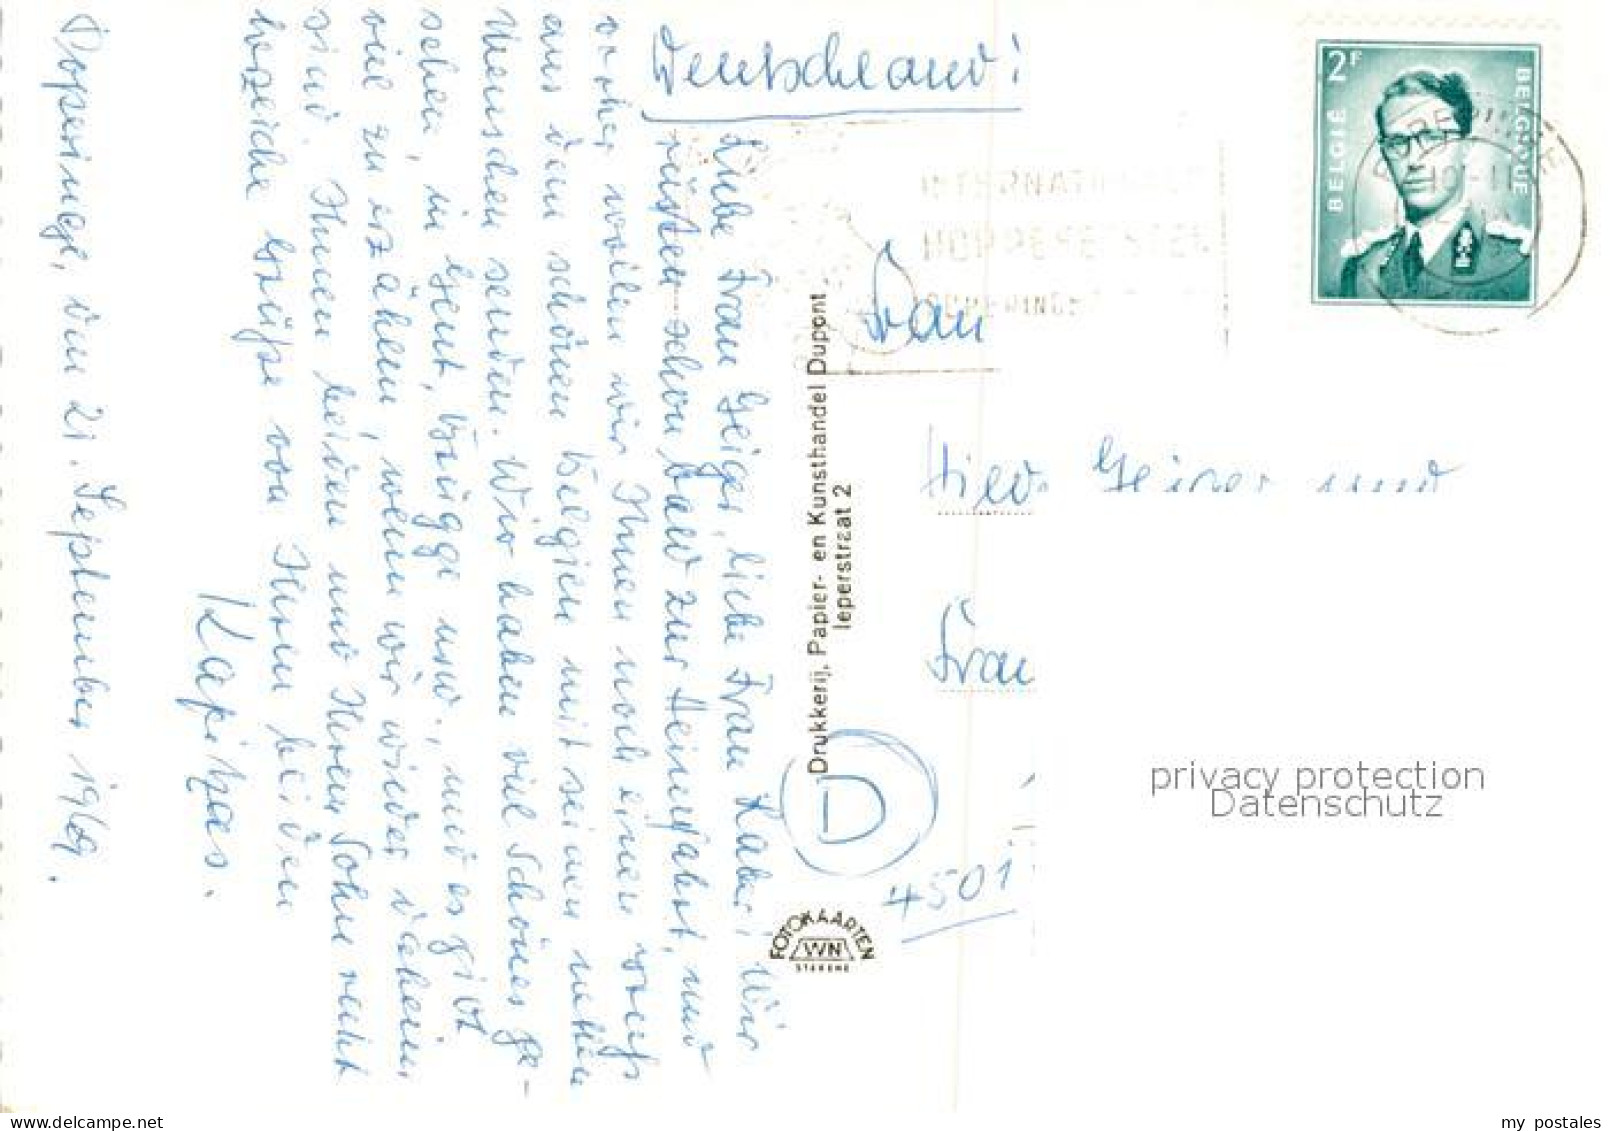 Deutschland!
2F
BELGIË
BELGIQUE
Frau
Hild. Geiger und
Frau
D
4501
Drukkerij, Papier- en Kunsthandel Dupont
Ieperstraat 2
FOTOKAARTEN
WN
STEKENE
Poperinge, den 21. September 1969.
Liebe Frau Geiger, liebe Frau Kaber, wir
rüsten schon bald zur Heimfahrt, und
vorher wollen wir Ihnen noch einen Gruß
aus dem schönen Belgien mit seinen netten
Menschen senden. Wir haben viel Schönes ge-
sehen, in Gent, Brügge usw., und es gibt
viel zu erzählen, wenn wir wieder daheim
sind. Ihnen beiden und Ihrem Sohn recht
herzliche Grüße von Ihren beiden
Kapitzas.
privacy protection
Datenschutz
www.delcampe.net
my_postales